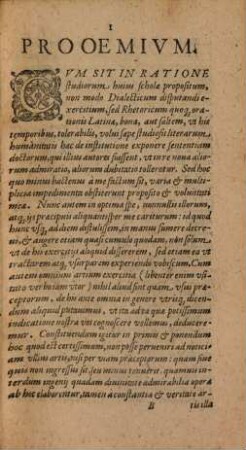 1
PROOEMIVM.
CVM SIT IN RATIONE
studiorum huius scholæ propositum,
non modo Dialecticum disputandi e-
xercitium, sed Rhetoricum quoq; ora-
tionis Latinæ, bona, aut saltem, vt his
temporibus, tolerabilis, volui sæpe studiosis literarum
humanitatis hac de institutione exponere sententiam
doctorum, qui illius autores fuissent, vt in re noua alio-
rum admiratio, aliorum dubitatio tolleretur. Sed hoc
quo minus hactenus a me factum sit, varia & multi-
plicia impedimenta obstiterunt proposito & voluntati
meæ. Nunc autem in optima spe, nonnullis
ut is præcipuis aliquantisper me cariturum: id quod
hunc vsq; ad diem distulissem, in manus sumere decre-
ui, & augere etiam quasi cumulo quodam, non solum
vt de his exercitijs aliquid dissererem, sed et iam ea in
tractarem vsu par
autem omnium artium exercitia (libenter enim vsi-
tato verbo iam vtor) nihil aliud sint quam, vsus præ-
ceptorum, de hu ante omnia in genere vtriusq; dicen-
dum aliquid putauimus, vt ita ad ea quæ potissimum
indicatione nostra vos cognoscere vellemus, deducere-
mur. Constituendum igitur in primis & ponendum
hoc quod est certissimum, non posse perueniri ad noti-
am vllius artis, nisi per viam præceptorum: quam siue
quis non ingressus sit, seu minus tenuerit, quamuis in-
terdum ingenij quadam diuinitate admirabilia opera
ab hoc elaborentur, tamen a constantia & veritate ar-
B
tis illa